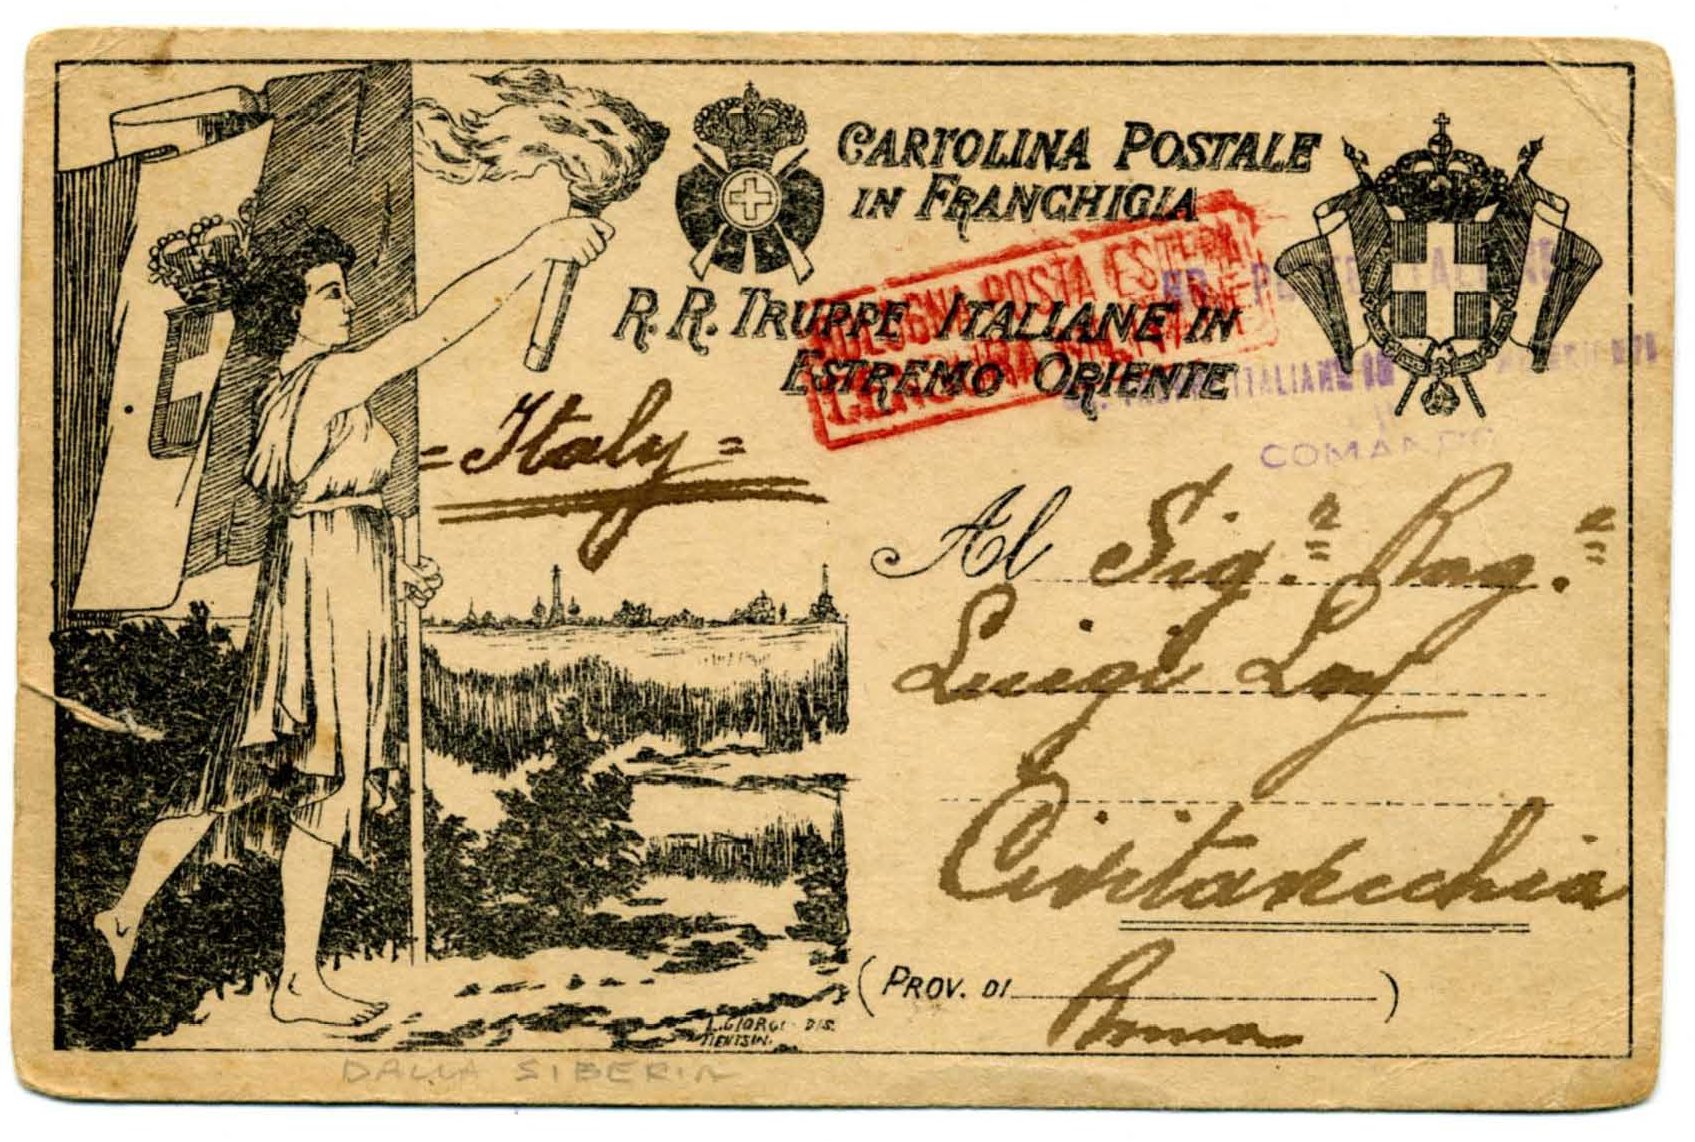 CARTOLINA POSTALE
IN FRANCHIGIA
R.R. TRUPPE ITALIANE IN
ESTREMO ORIENTE
BOLOGNA POSTA ESTERA
CENSURA
ITALIANE IN
COMANDO
=Italy=
Al Sig.r Rag.e
Luigi Loy
Civitavecchia
(PROV. DI Roma)
L. GIORGI - DIS.
TIENTSIN.
DALLA SIBERIA